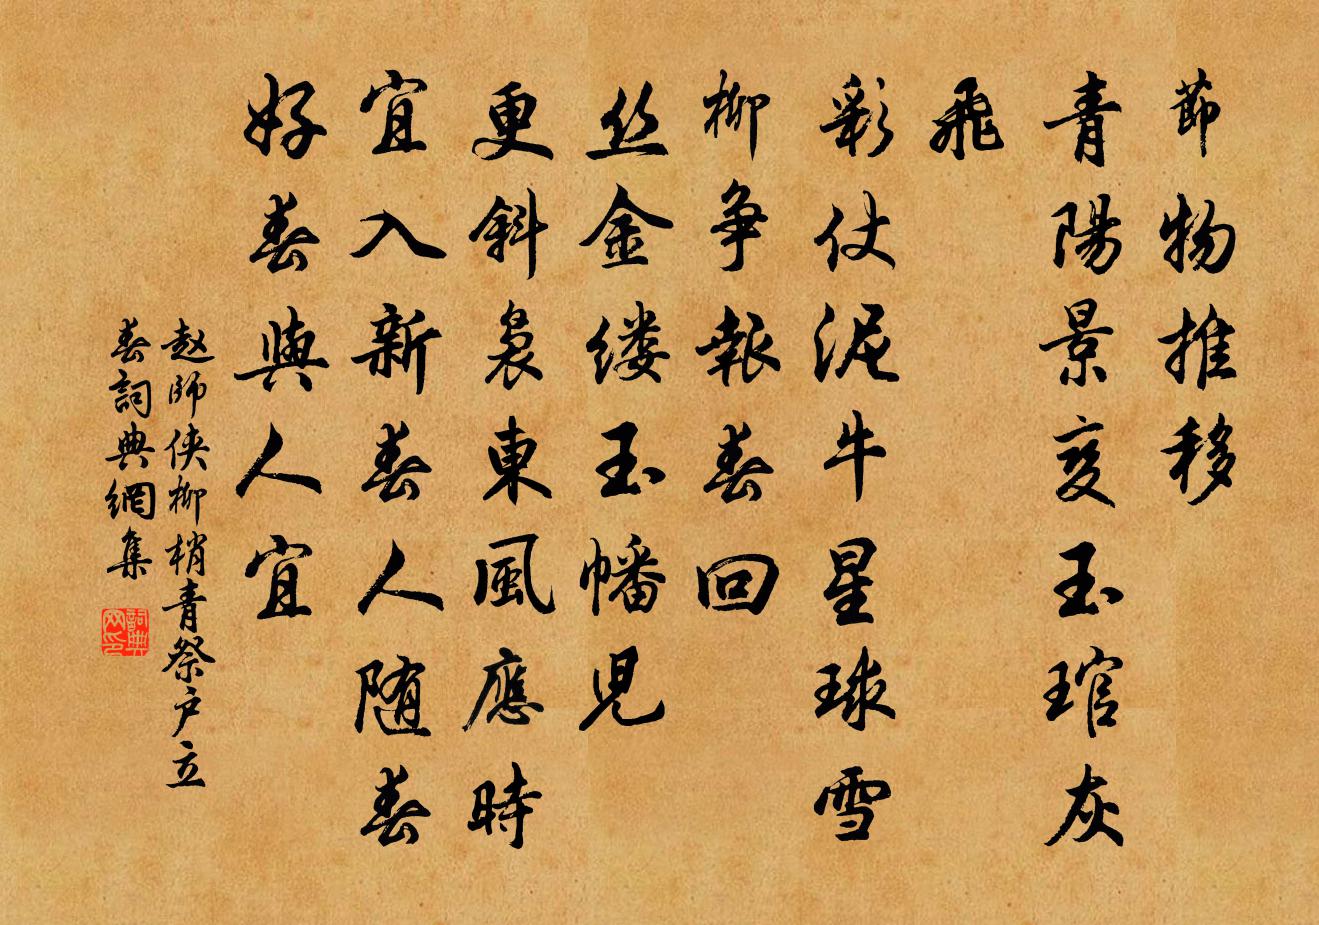 節物推移
青陽景变玉琯灰
飛
彩仗泥牛星球雪
柳争報春回
丝金缕玉幡児
更斜裊東風應時
宜入新春人随春
好春與人宜
赵師侠柳梢青祭户立
春詞典網集
詞典
网印